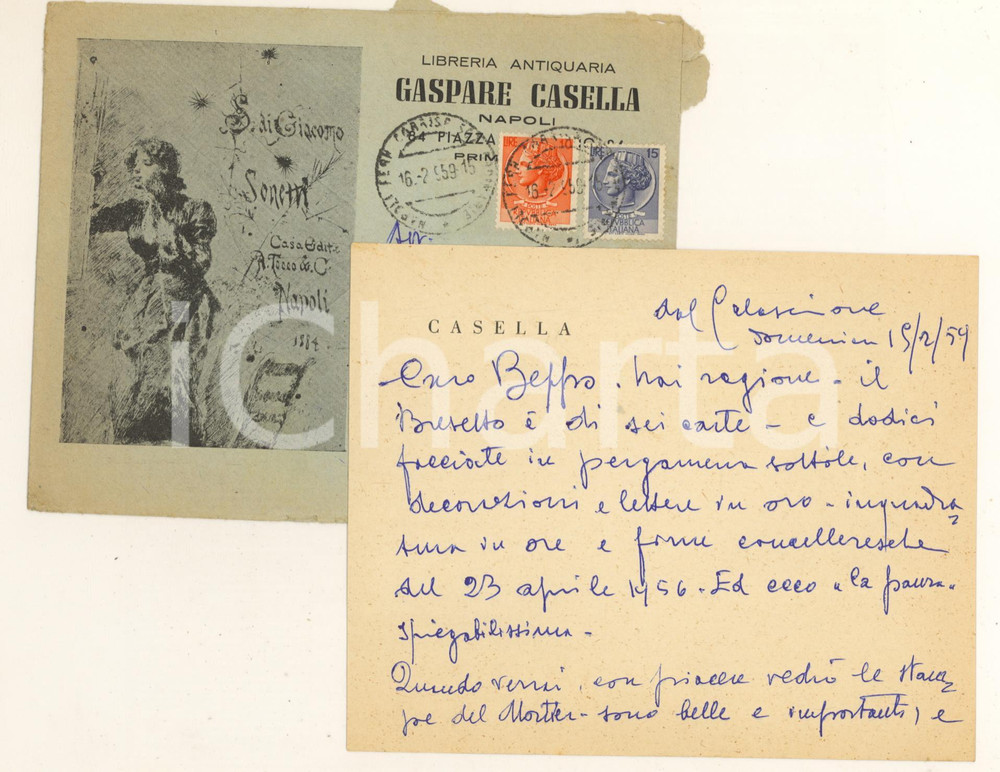 LIBRERIA ANTIQUARIA
GASPARE CASELLA
NAPOLI
64 PIAZZA
PRIM
S. di Giacomo
Sonetti
Casa Edit.
R. Tocco & C.
Napoli
1884
16.-2 1959-15
LIRE 10
16.-2 1959
LIRE 15
REPUBBLICA
ITALIANA
iCharta
CASELLA
dal
domenica 15/2/59
Caro Beppo. hai ragione - il
Brevetto è di sei carte - e dodici
facciate in pergamena sottile, con
decorazioni e lettere in oro - inquadra
tura in oro e firme cancelleresche
del 23 aprile 1456 - Ed ecco "la paura"
spiegabilissima -
Quando verrai, con piacere vedrò le stam
pe del Mortier - sono belle e importanti, e